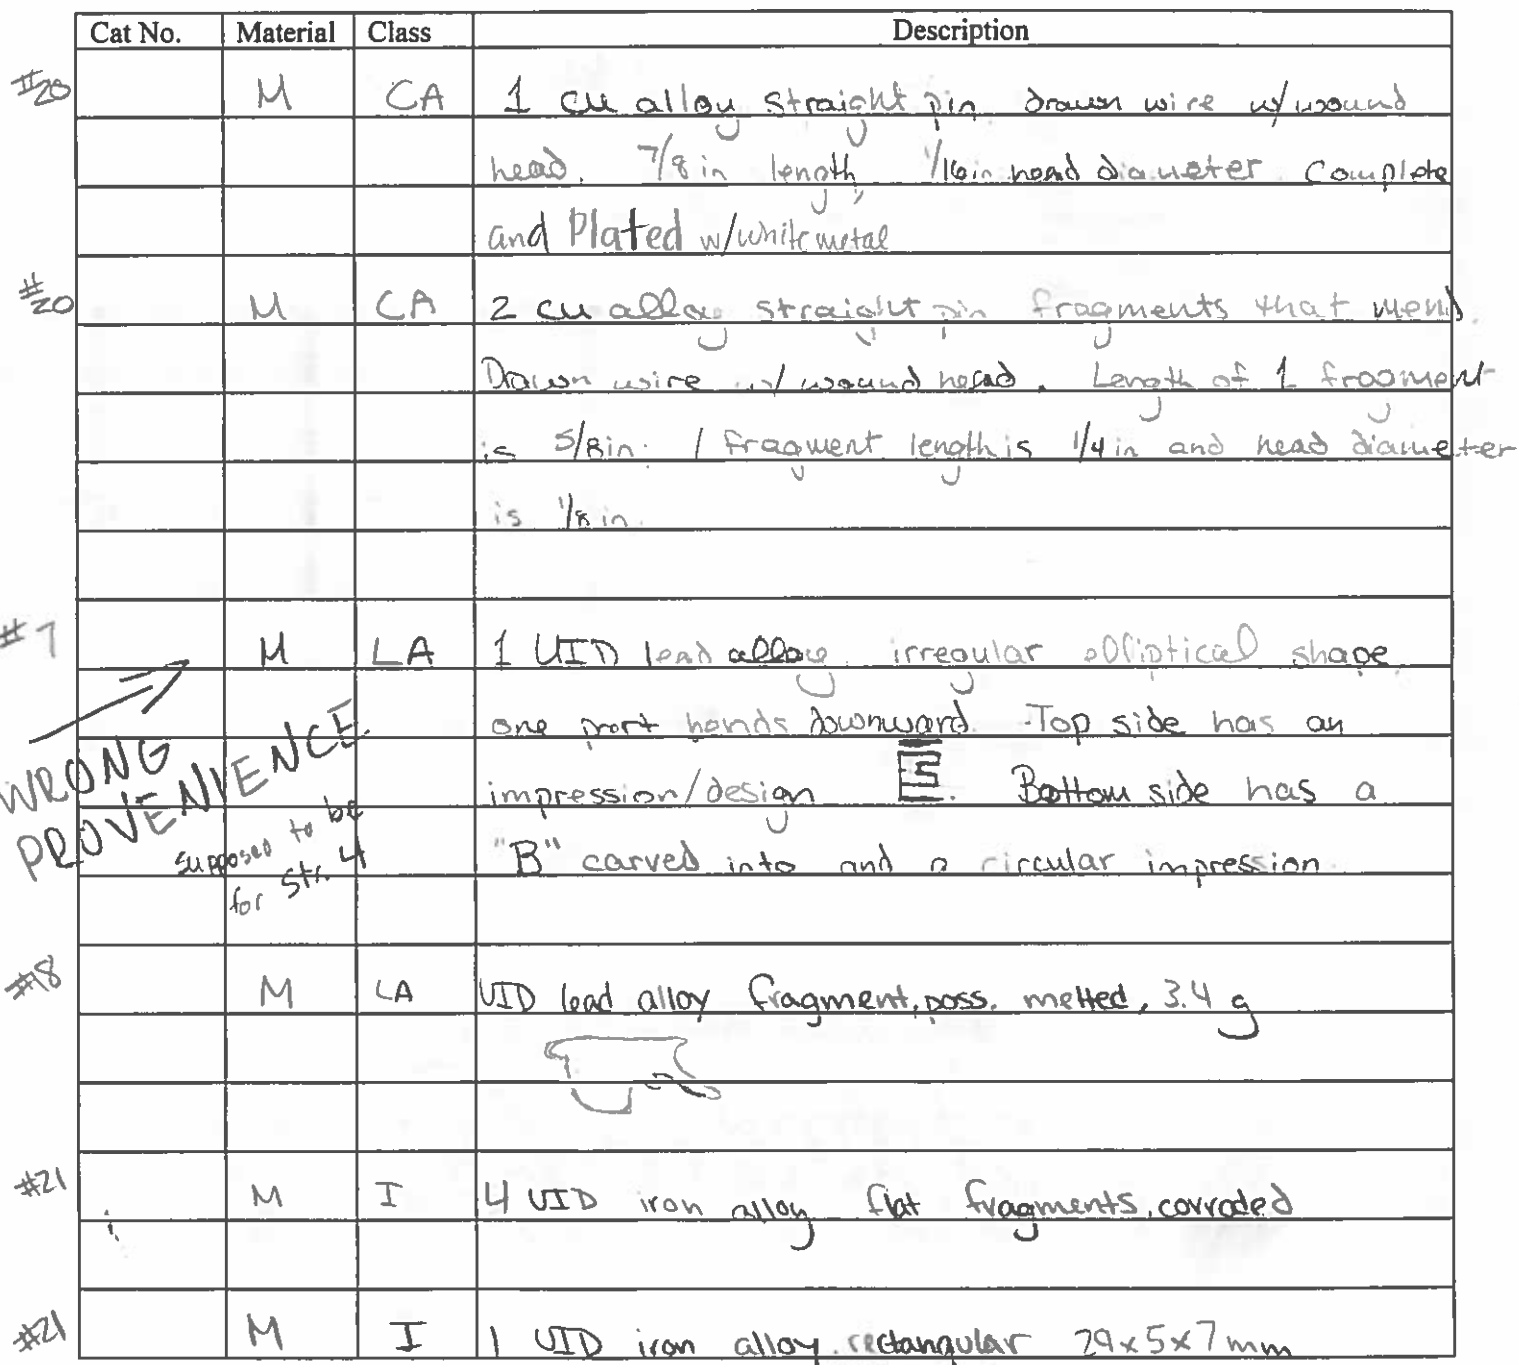 Cat No. Material Class Description
#20 M CA 1 cu alloy straight pin drawn wire w/wound
head. 7/8 in length, 1/16in head diameter. Complete
and Plated w/white metal
#20 M CA 2 cu alloy straight pin fragments that mend.
Drawn wire w/ wound head. Length of 1 fragment
is 5/8in. 1 fragment length is 1/4 in and head diameter
is 1/8 in.
#7 M LA 1 UID lead alloy irregular elliptical shape
one part bends downward. Top side has an
impression/design . Bottom side has a
"B" carved into and a circular impression.
WRONG
PROVENIENCE
supposed to be
for str. 4
#18 M LA UID lead alloy fragment, poss. melted, 3.4 g
#21 M I 4 UID iron alloy flat fragments, corroded
#21 M I 1 UID iron alloy rectangular 29x5x7mm